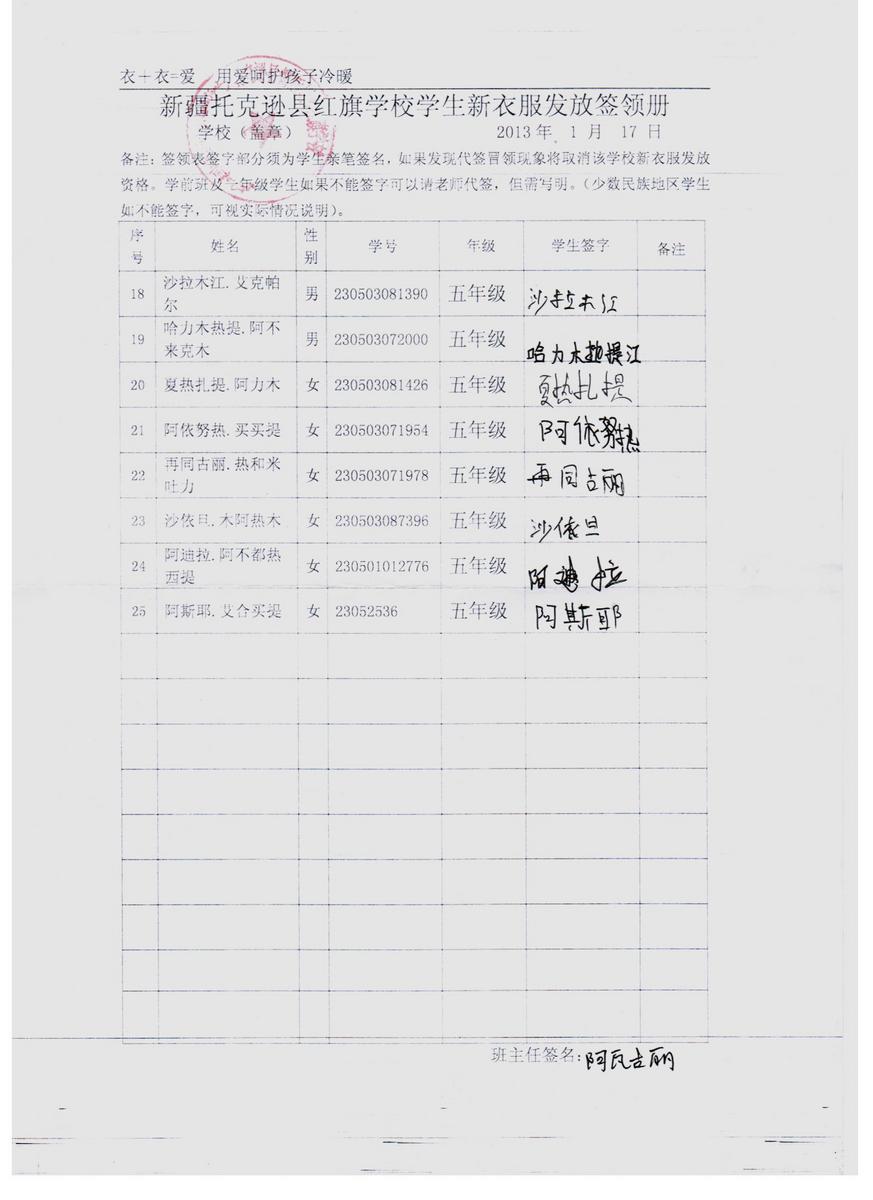 衣+衣=爱 用爱呵护孩子冷暖
新疆托克逊县红旗学校学生新衣服发放签领册
学校（盖章） 2013年 1 月 17 日
备注：签领表签字部分须为学生亲笔签名，如果发现代签冒领现象将取消该学校新衣服发放
资格。学前班及一年级学生如果不能签字可以请老师代签，但需写明。（少数民族地区学生
如不能签字，可视实际情况说明）。
序号 姓名 性别 学号 年级 学生签字 备注
18 沙拉木江.艾克帕尔 男 230503081390 五年级 沙拉木江
19 哈力木热提.阿不来克木 男 230503072000 五年级 哈力木热提江
20 夏热扎提.阿力木 女 230503081426 五年级 夏热扎提
21 阿依努热.买买提 女 230503071954 五年级 阿依努热
22 再同古丽.热和米吐力 女 230503071978 五年级 再同古丽
23 沙依旦.木阿热木 女 230503087396 五年级 沙依旦
24 阿迪拉.阿不都热西提 女 230501012776 五年级 阿迪拉
25 阿斯耶.艾合买提 女 23052536 五年级 阿斯耶
班主任签名：阿瓦古丽